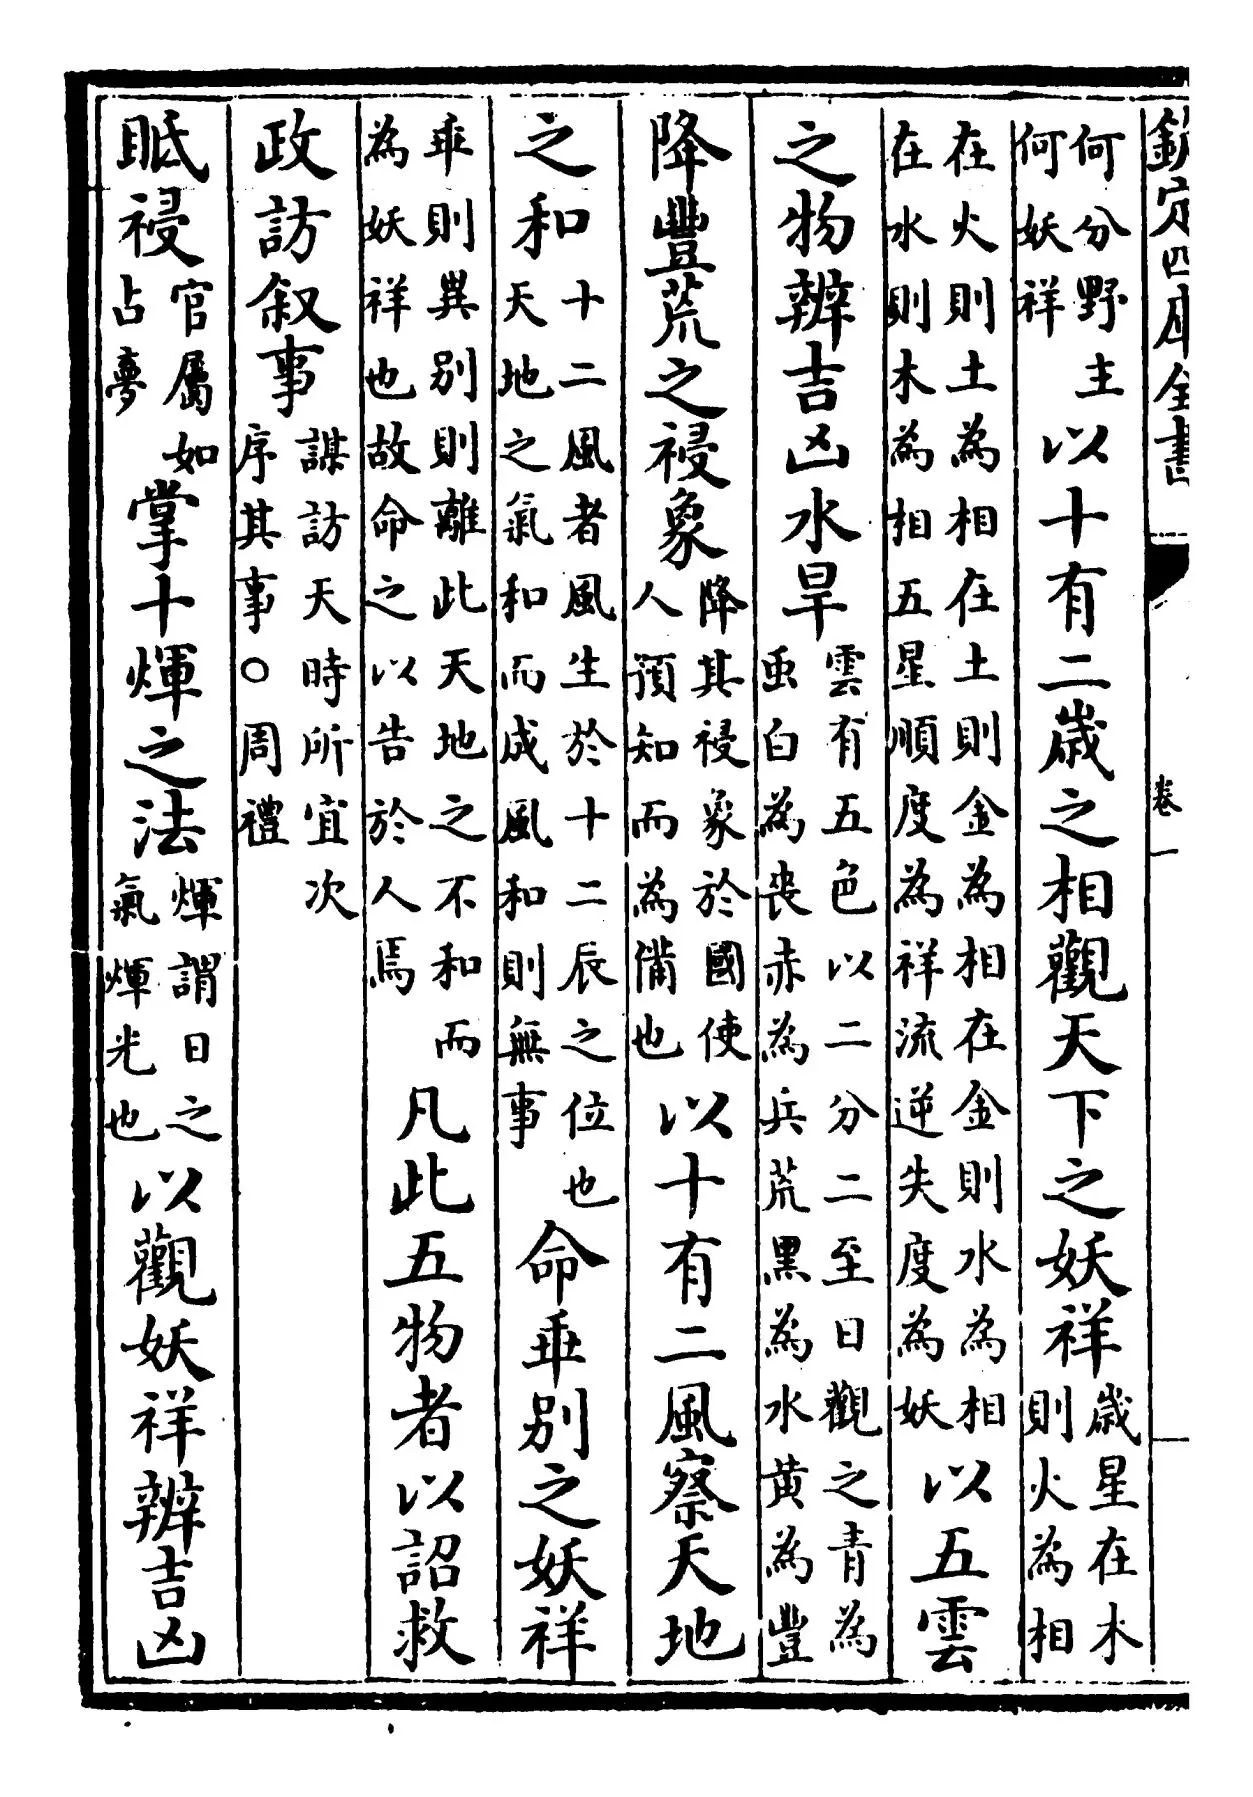 欽定四庫全書
卷一
何分野主何妖祥以十有二歲之相觀天下之妖祥歲星在木則火為相
在火則土為相在土則金為相在金則水為相在水則木為相五星順度為祥流逆失度為妖以五雲
之物辨吉凶水旱雲有五色以二分二至日觀之青為虫白為喪赤為兵荒黑為水黄為豐
降豐荒之祲象降其祲象於國使人預知而為備也以十有二風察天地
之和十二風者風生於十二辰之位也天地之氣和而成風和則無事命乖别之妖祥
乖則異别則離此天地之不和而為妖祥也故命之以告於人焉凡此五物者以詔救
政訪叙事謀訪天時所宜次序其事○周禮
眂祲官屬如占夢掌十煇之法煇謂日之氣煇光也以觀妖祥辨吉凶